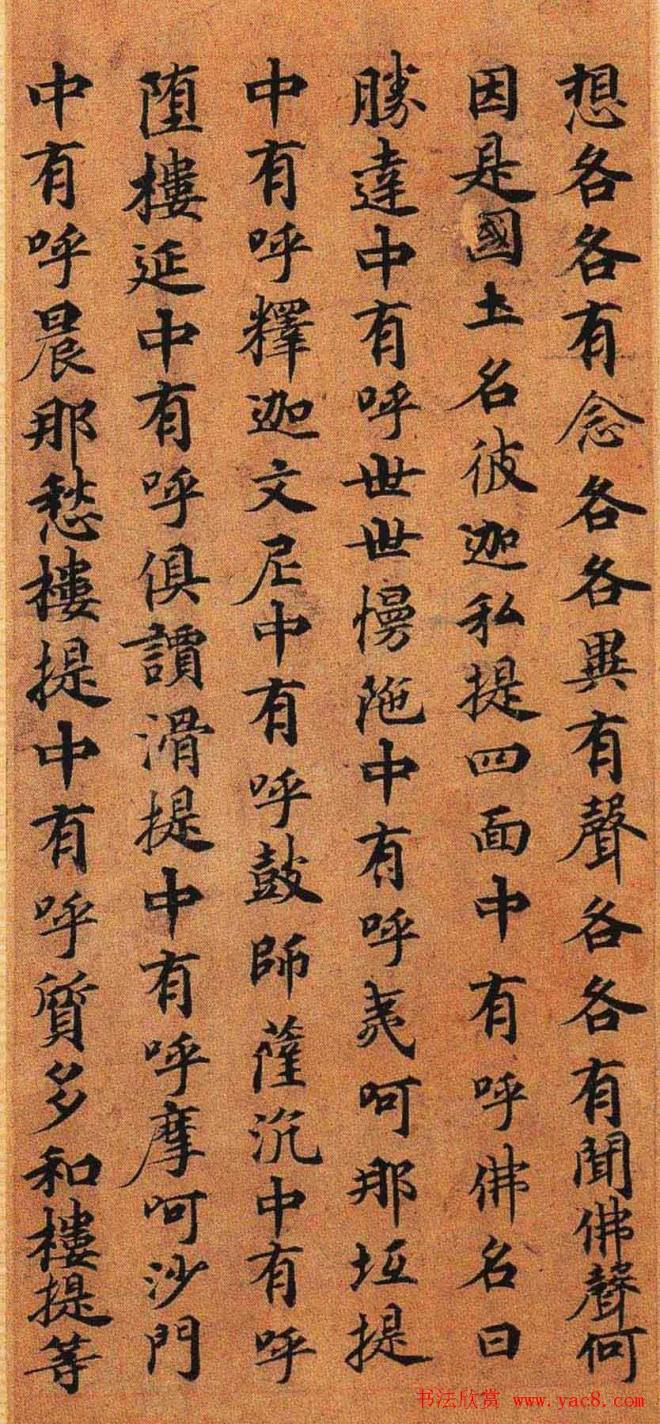 想各各有念各各異有聲各各有聞佛聲何
因是國土名彼迦私提四面中有呼佛名曰
勝達中有呼世世慢陁中有呼夷呵那坘提
中有呼釋迦文尼中有呼鼓師薩沉中有呼
墮樓延中有呼俱讀滑提中有呼摩呵沙門
中有呼晨那愁樓提中有呼質多和樓提等
书法欣赏 www.yac8.com